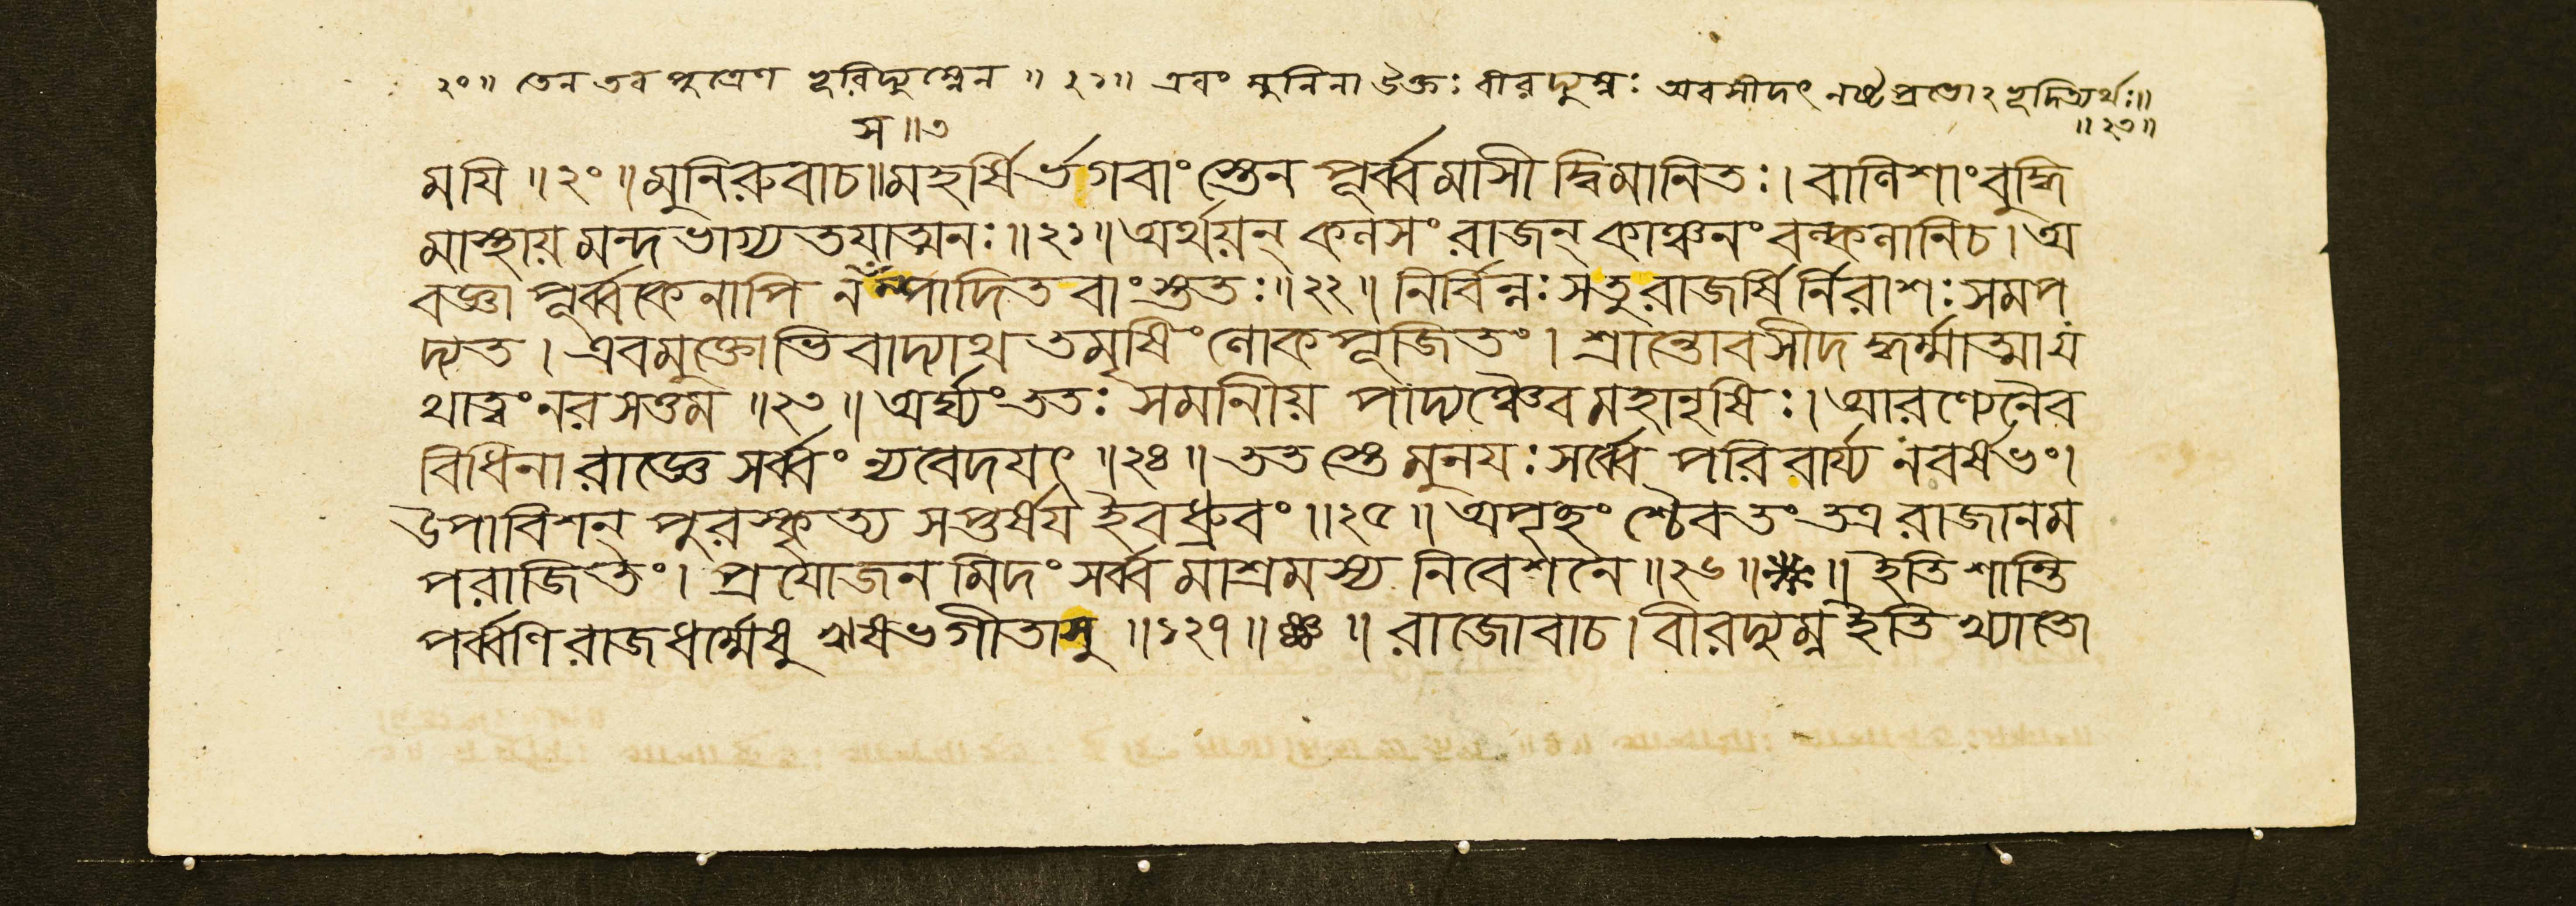 ২০॥ তেন তব পুত্রেণ ভূরিদ্যুম্নেন ॥ ২১॥ এবং মুনিনা উক্তঃ বীরদ্যুম্নঃ অবসীদৎ নষ্টপ্রভো২ভূদিত্যর্থঃ॥
স॥৩ ॥২৩॥
ময়ি ॥২০॥ মুনিরুবাচ॥ মহর্ষির্ভগবাংস্তেন পূর্ব্বমাসীদ্বিমানিতঃ। বালিশাং বুদ্ধি
মাস্থায় মন্দভাগ্যতয়াত্মনঃ॥২১॥ অর্থয়ন্ কলসং রাজন্ কাঞ্চনং বল্কলানিচ। অ
বজ্ঞাপূর্ব্বকেনাপি ন সম্পাদিতবাংস্ততঃ॥২২॥ নির্বিন্নঃ সতু রাজর্ষির্নিরাশঃ সমপ
দ্যত। এবমুক্তোভিবাদ্যাথ তমৃষিং লোকপূজিতং। শ্রান্তোবসীদদ্ধর্ম্মাত্মা য
থাত্বং নরসত্তম ॥২৩॥ অর্ঘ্যং ততঃ সমানীয় পাদ্যঞ্চৈব মহানৃষিঃ। আরণ্যেনৈব
বিধিনা রাজ্ঞে সর্ব্বং ন্যবেদয়ৎ ॥২৪॥ ততস্তে মুনয়ঃ সর্ব্বে পরিবার্য্য নরর্ষভং।
উপাবিশন্ পুরস্কৃত্য সপ্তর্ষয় ইবধ্রুবং॥২৫॥ অপৃচ্ছংশ্চৈবতং তত্র রাজানম
পরাজিতং। প্রয়োজনমিদং সর্ব্বমাশ্রমস্য নিবেশনে॥২৬॥ ॥ ইতি শান্তি
পর্ব্বণি রাজধর্ম্মেষু ঋষভগীতাসু ॥১২৭॥ ॥ রাজোবাচ। বীরদ্যুম্ন ইতি খ্যাতো